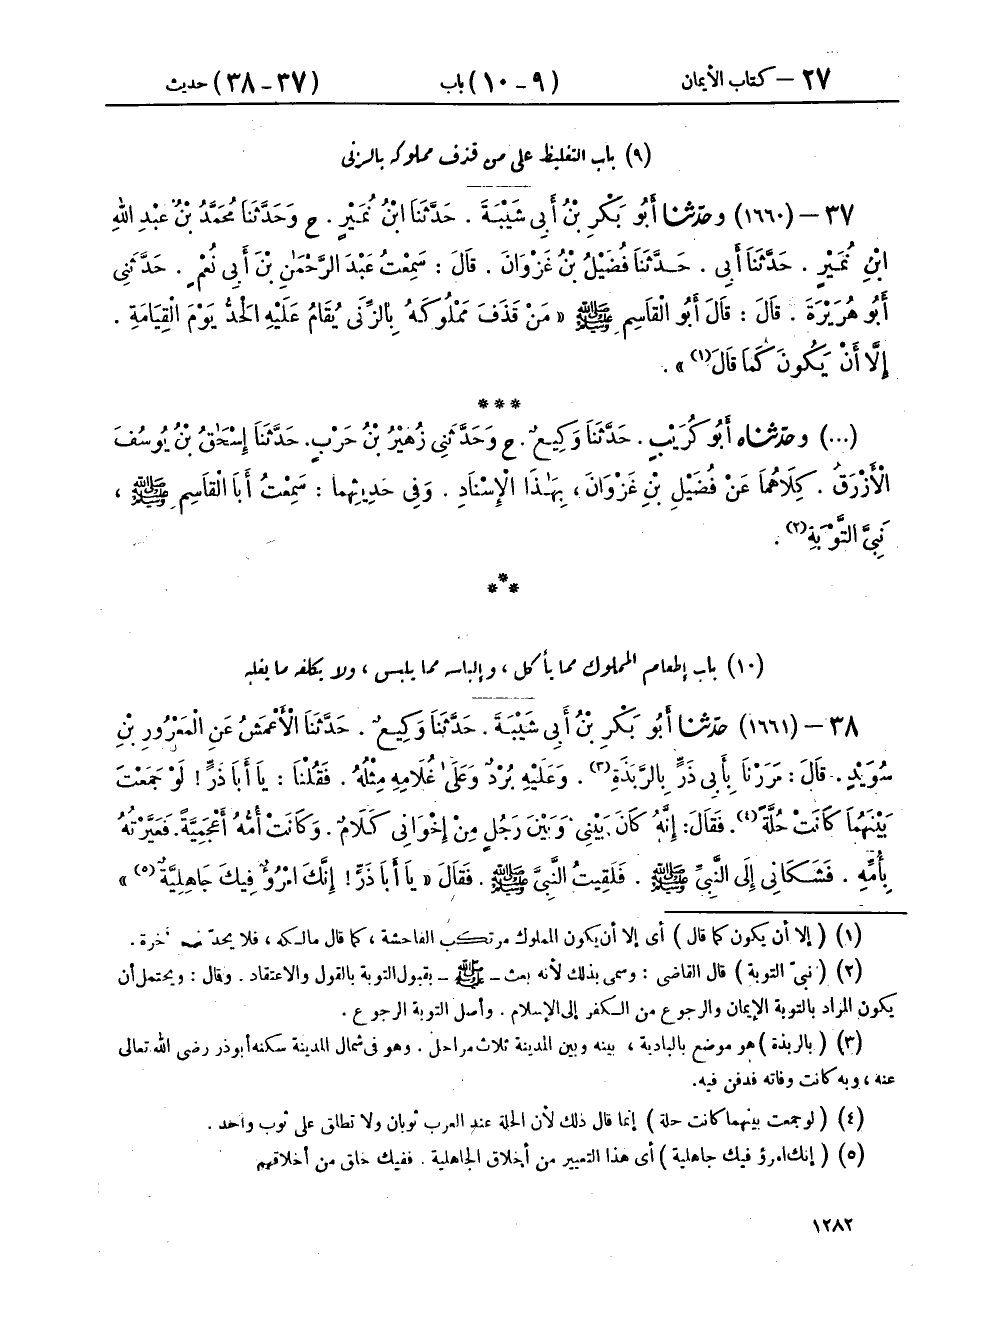 ٢٧ – كتاب الأيمان (٩ – ١٠) باب (٣٧ – ٣٨) حديث
(٩) باب التغليظ على من قذف مملوكه بالزنى
٣٧ – (١٦٦٠) وحدّثنا أَبُو بَكْرِ بْنُ أَبِي شَيْبَةَ . حَدَّثَنَا ابْنُ نُمَيْرٍ . ح وَحَدَّثَنَا مُحَمَّدُ بْنُ عَبْدِ اللهِ
ابْنِ نُمَيْرٍ . حَدَّثَنَا أَبِي . حَدَّثَنَا فُضَيْلُ بْنُ غَزْوَانَ . قَالَ : سَمِعْتُ عَبْدَ الرَّحْمَٰنِ بْنَ أَبِي نُعْمٍ . حَدَّثَنِي
أَبُو هُرَيْرَةَ . قَالَ : قَالَ أَبُو الْقَاسِمِ ﷺ « مَنْ قَذَفَ مَمْلُوكَهُ بِالزِّنَى يُقَامُ عَلَيْهِ الْحَدُّ يَوْمَ الْقِيَامَةِ .
إِلَّا أَنْ يَكُونَ كَمَا قَالَ(١) » .
***
(...) وحدّثناه أَبُو كُرَيْبٍ . حَدَّثَنَا وَكِيعٌ . ح وَحَدَّثَنِي زُهَيْرُ بْنُ حَرْبٍ . حَدَّثَنَا إِسْحَٰقُ بْنُ يُوسُفَ
الْأَزْرَقُ . كِلَاهُمَا عَنْ فُضَيْلِ بْنِ غَزْوَانَ ، بِهَٰذَا الْإِسْنَادِ . وَفِي حَدِيثِهِمَا : سَمِعْتُ أَبَا الْقَاسِمِ ﷺ ،
نَبِيَّ التَّوْبَةِ(٢) .
***
(١٠) باب إطعام المملوك مما يأكل ، وإلباسه مما يلبس ، ولا يكلفه ما يغلبه
٣٨ – (١٦٦١) حدّثنا أَبُو بَكْرِ بْنُ أَبِي شَيْبَةَ . حَدَّثَنَا وَكِيعٌ . حَدَّثَنَا الْأَعْمَشُ عَنِ الْمَعْرُورِ بْنِ
سُوَيْدٍ . قَالَ : مَرَرْنَا بِأَبِي ذَرٍّ بِالرَّبَذَةِ(٣) . وَعَلَيْهِ بُرْدٌ وَعَلَىٰ غُلَامِهِ مِثْلُهُ . فَقُلْنَا : يَا أَبَا ذَرٍّ ! لَوْ جَمَعْتَ
بَيْنَهُمَا كَانَتْ حُلَّةً(٤) . فَقَالَ : إِنَّهُ كَانَ بَيْنِي وَبَيْنَ رَجُلٍ مِنْ إِخْوَانِي كَلَامٌ . وَكَانَتْ أُمُّهُ أَعْجَمِيَّةً . فَعَيَّرْتُهُ
بِأُمِّهِ . فَشَكَانِي إِلَى النَّبِيِّ ﷺ . فَلَقِيتُ النَّبِيَّ ﷺ . فَقَالَ « يَا أَبَا ذَرٍّ ! إِنَّكَ امْرُؤٌ فِيكَ جَاهِلِيَّةٌ(٥) »
(١) ( إلا أن يكون كما قال ) أى إلا أن يكون المملوك مرتكب الفاحشة ، كما قال مالكه ، فلا يحدّ
(٢) ( نبيّ التوبة ) قال القاضى : وسمى بذلك لأنه بعث – ﷺ – بقبول التوبة بالقول والاعتقاد . وقال : ويحتمل أن
يكون المراد بالتوبة الإيمان والرجوع من الكفر إلى الإسلام . وأصل التوبة الرجوع .
(٣) ( بالربذة ) هو موضع بالبادية ، بينه وبين المدينة ثلاث مراحل . وهو فى شمال المدينة سكنه أبو ذر رضى الله تعالى
عنه ، وبه كانت وفاته فدفن فيه .
(٤) ( لو جمعت بينهما كانت حلة ) إنما قال ذلك لأن الحلة عند العرب ثوبان ولا تطلق على ثوب واحد .
(٥) ( إنك امرؤ فيك جاهلية ) أى هذا التعيير من أخلاق الجاهلية . ففيك خلق من أخلاقهم
١٢٨٢